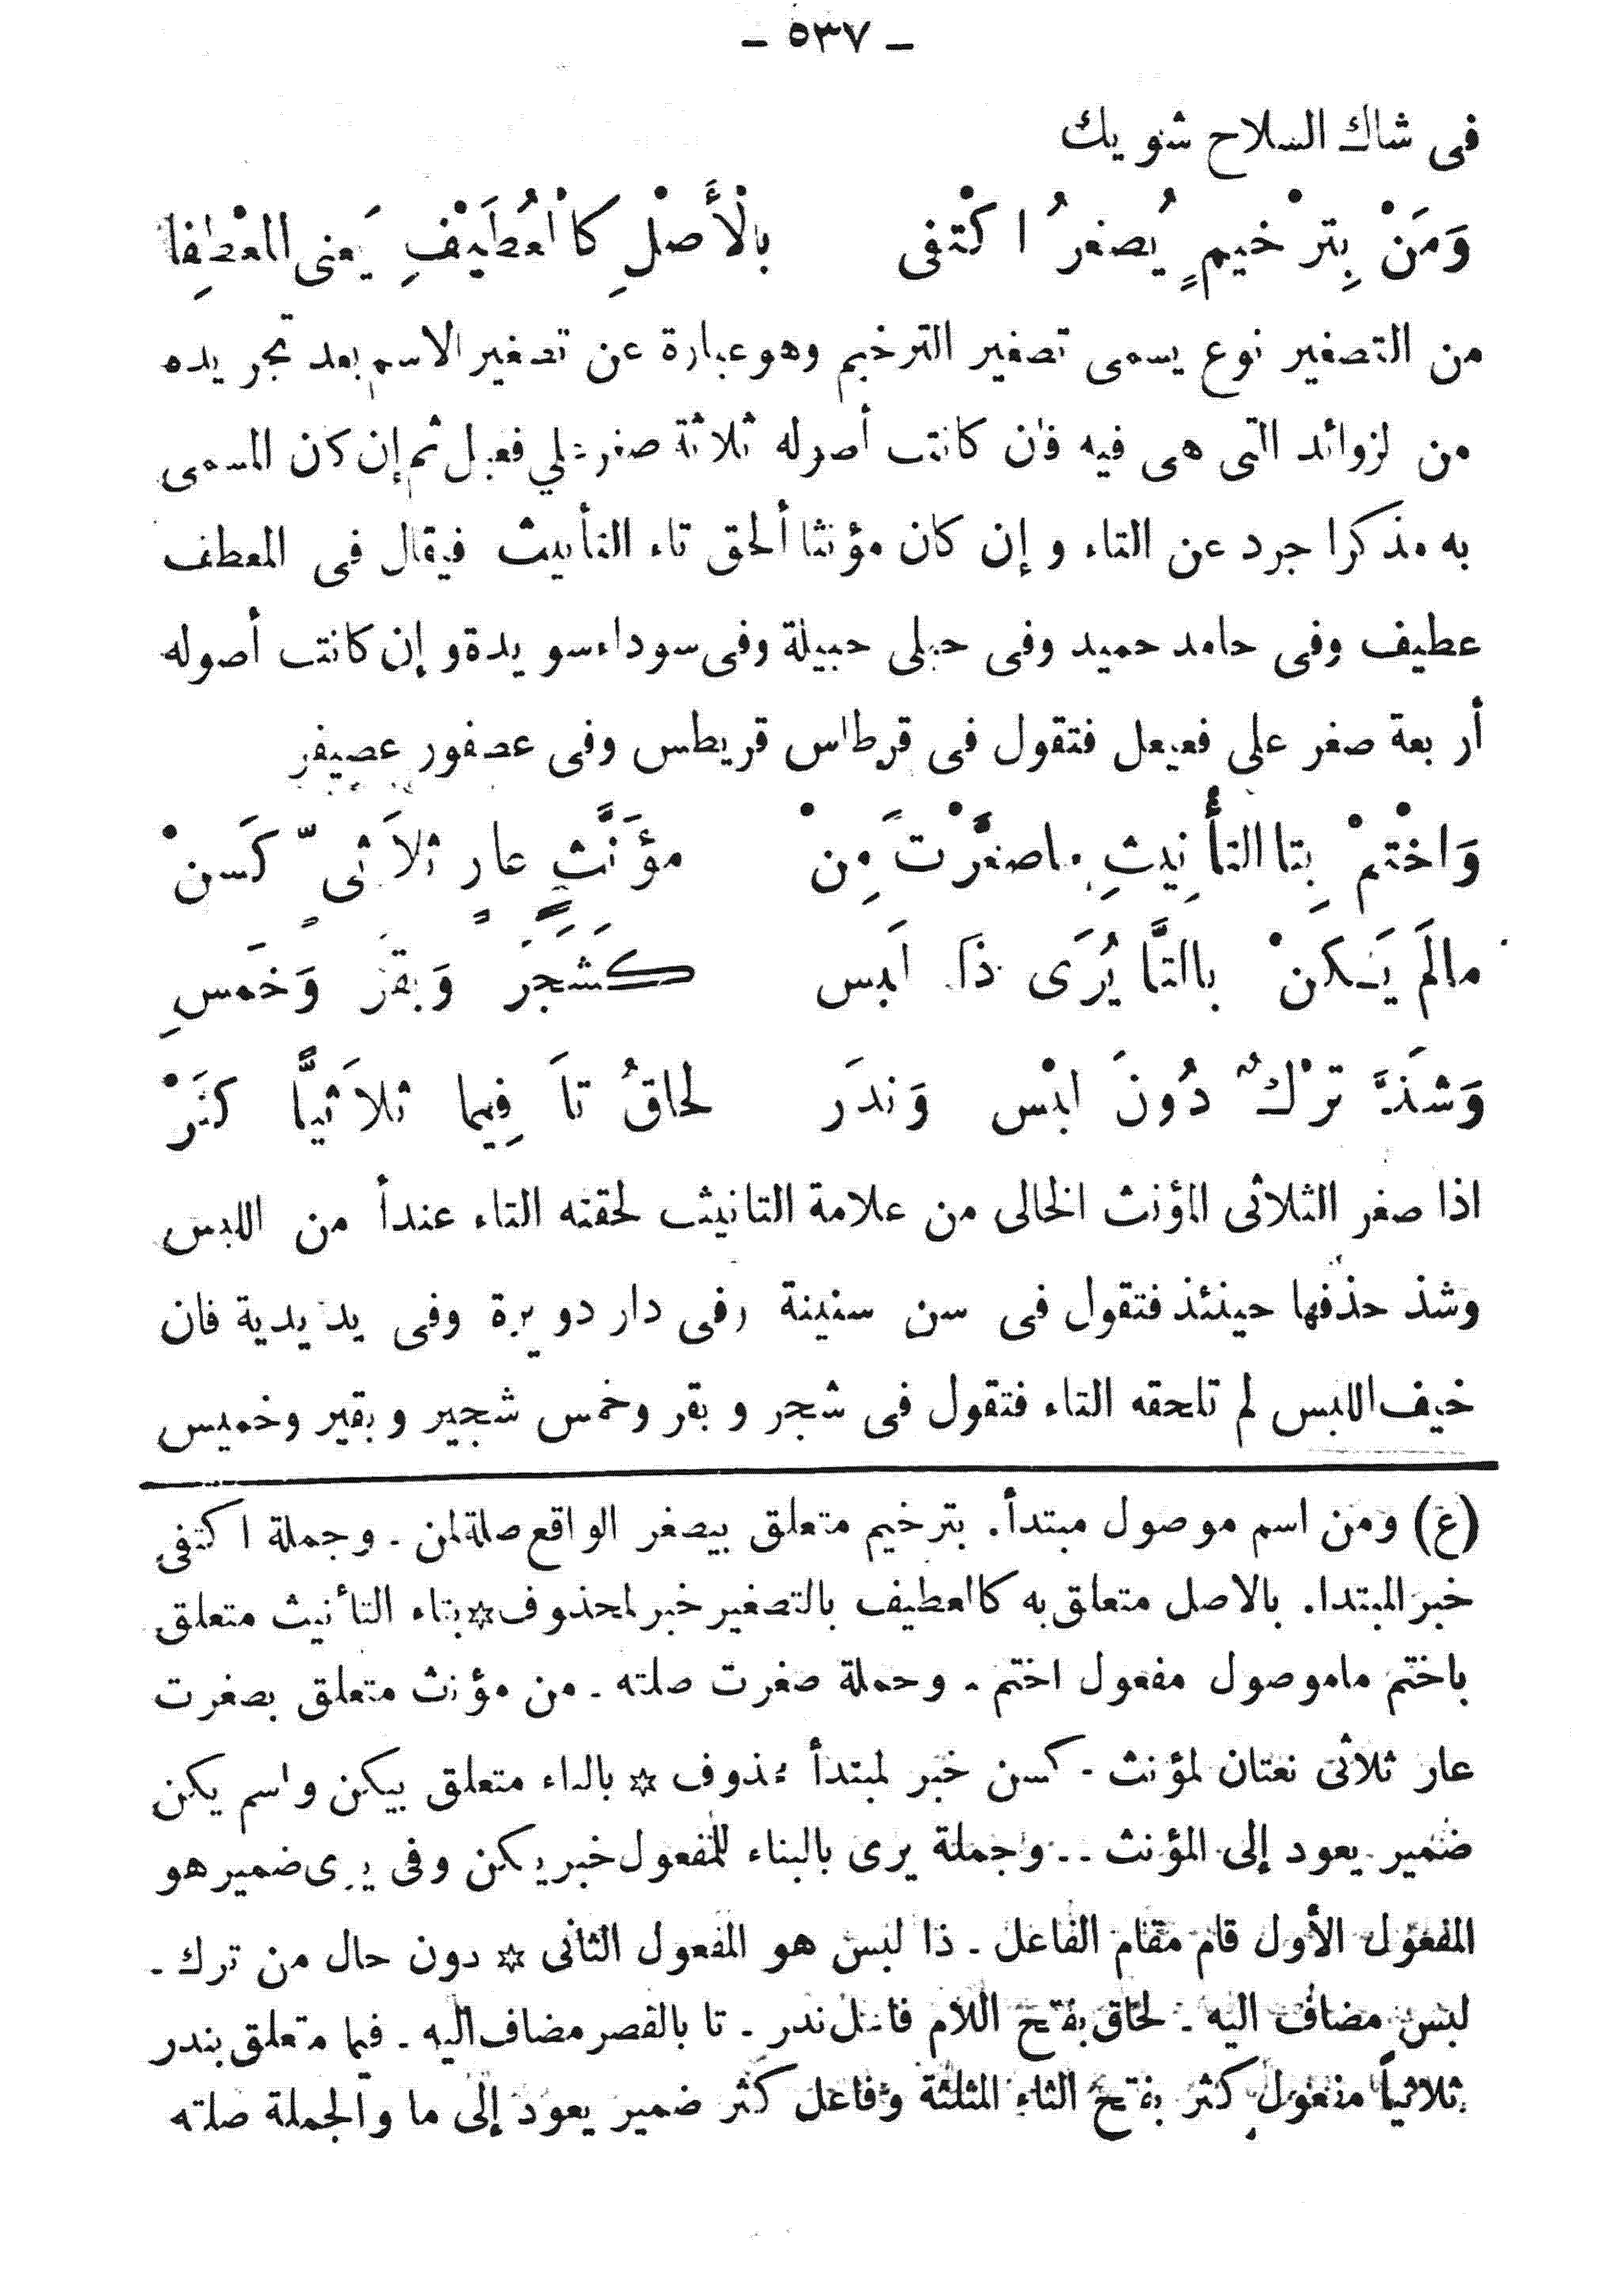 – ٥٣٧ –
فى شاك السلاح شويك
وَمَنْ بِتَرْخيمٍ يُصغرُ اكْتفى بالْأَصْلِ كاْلعُطَيْفِ يَعنى المعْطفِا
من التصغير نوع يسمى تصغير الترخيم وهوعبارة عن تصغير الاسم بعد تجريده
من لزوائد التى هى فيه فان كانت أصوله ثلاثة صغر على فعيل ثم إن كن المسمى
به مذكرا جرد عن التاء و إن كان مؤنثا ألحق تاء التأنيث فيقال فى المعطف
عطيف وفى حامد حميد وفى حبلى حبيلة وفى سوداء سويدة و إن كانت أصوله
أربعة صغر على فعيعل فتقول فى قرطاس قريطس وفى عصفور عصيفر
وَاخْتمْ بِتا التأْنِيثِ ماصغَّرْتَ مِنْ مؤَنَّثٍ عارٍ ثلاَثىٍّ كَسنْ
مالَم يَكنْ بالتَّا يُرَى ذَا لَبس كَشَجَرَ وَبقرَ وَخَمسِ
وَشَذَّ ترْكٌ دُونَ لبْس وَندَر لحاقُ تاَ فِيما ثلاَثيًّا كثَرْ
اذا صغر الثلاثى المؤنث الخالى من علامة التانيث لحقته التاء عندأ من اللبس
وشذ حذفها حينئذ فتقول فى سن سنينة وفى دار دويرة وفى يد يدية فان
خيف اللبس لم تلحقه التاء فتقول فى شجر و بقر وخمس شجير و بقير وخميس
(ع) ومن اسم موصول مبتدأ. بترخيم متعلق بيصغر الواقع صلة لمن - وجملة اكتفى
خبر المبتدا. بالاصل متعلق به كالعطيف بالتصغير خبر لمحذوف ✡ بتاء التأنيث متعلق
باختم ماموصول مفعول اختم - وجملة صغرت صلته - من مؤنث متعلق بصغرت
عار ثلاثى نعتان لمؤنث - كسن خبر لمبتدأ محذوف ✡ بالتاء متعلق بيكن واسم يكن
ضمير يعود إلى المؤنث -- وجملة يرى بالبناء للمفعول خبر يكن وفى يرى ضمير هو
المفعول الأول قام مقام الفاعل - ذا لبس هو المفعول الثانى ✡ دون حال من ترك -
لبس مضاف اليه - لحاق بفتح اللام فاعل ندر - تا بالقصر مضاف اليه - فيما متعلق بندر
ثلاثياً مفعول كثر بفتح الثاء المثلثة وفاعل كثر ضمير يعود إلى ما والجملة صلته